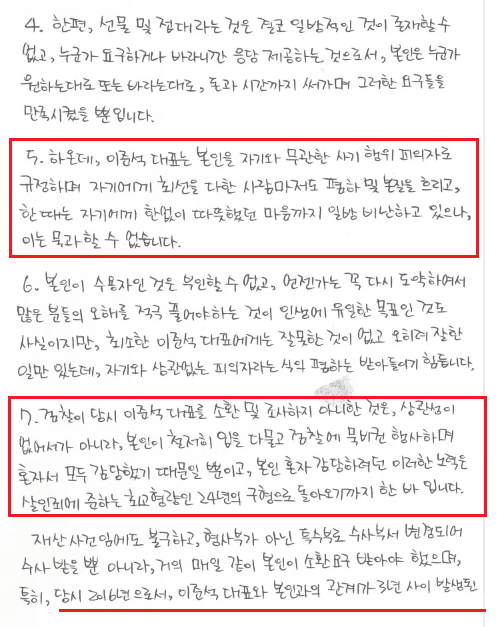 4. 한편, 선물 및 접대라는 것은 결코 일방적인 것이 존재할 수
없고, 누군가 요구하거나 바라니깐 응당 제공하는 것으로서, 본인은 누군가
원하는대로 또는 바라는대로, 돈과 시간까지 써가며 그러한 요구들을
만족시켰을 뿐입니다.
5. 하온데, 이준석 대표는 본인을 자기와 무관한 사기 행위 피의자로
규정하며 자기에게 최선을 다한 사람마저도 폄하 및 본질을 흐리고,
한때는 자기에게 한없이 따뜻했던 마음까지 일방 비난하고 있으나,
이는 묵과할 수 없습니다.
6. 본인이 수용자인 것은 부인할 수 없고, 언젠가는 꼭 다시 도약하여서
많은 분들의 오해를 적극 풀어야하는 것이 인생에 유일한 목표인 것도
사실이지만, 최소한 이준석 대표에게는 잘못한 것이 없고 오히려 잘한
일만 있는데, 자기와 상관없는 피의자라는 식의 폄하는 받아들이기 힘듭니다.
7. 검찰이 당시 이준석 대표를 소환 및 조사하지 아니한 것은, 상관성이
없어서가 아니라, 본인이 철저히 입을 다물고 검찰에 묵비권 행사하며
혼자서 모두 감당했기 때문일 뿐이고, 본인 혼자 감당하려던 이러한 노력은
살인죄에 준하는 최고형량인 24년의 구형으로 돌아오기까지 한 바 입니다.
재산 사건임에도 불구하고, 형사부가 아닌 특수부로 수사부서 변경되어
수사 받을 뿐 아니라, 거의 매일 같이 본인이 소환요구 받아야 했으며,
특히, 당시 2016년으로서, 이준석 대표와 본인과의 관계가 3년 사이 발생된